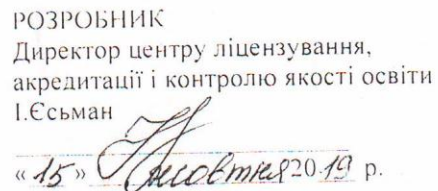 РОЗРОБНИК
Директор центру ліцензування,
акредитації і контролю якості освіти
І.Єсьман
« 15 » жовтня 2019 р.